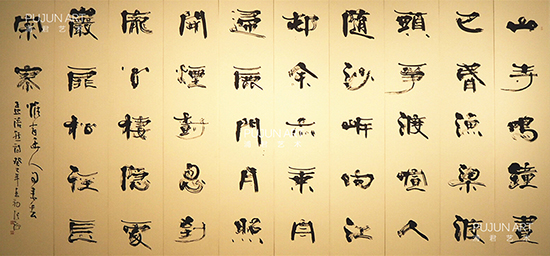 山寺鳴鐘晝
已昏漁梁渡
頭爭渡喧人
隨沙岸向江
邨余亦乘舟
歸鹿門月照
開煙樹忽到
龐公棲隱處
巖扉松徑長
寂寥
惟有幽人自來去
癸巳年
PUJUN ART
PUJUN ART
PUJUN ART
PUJUN ART